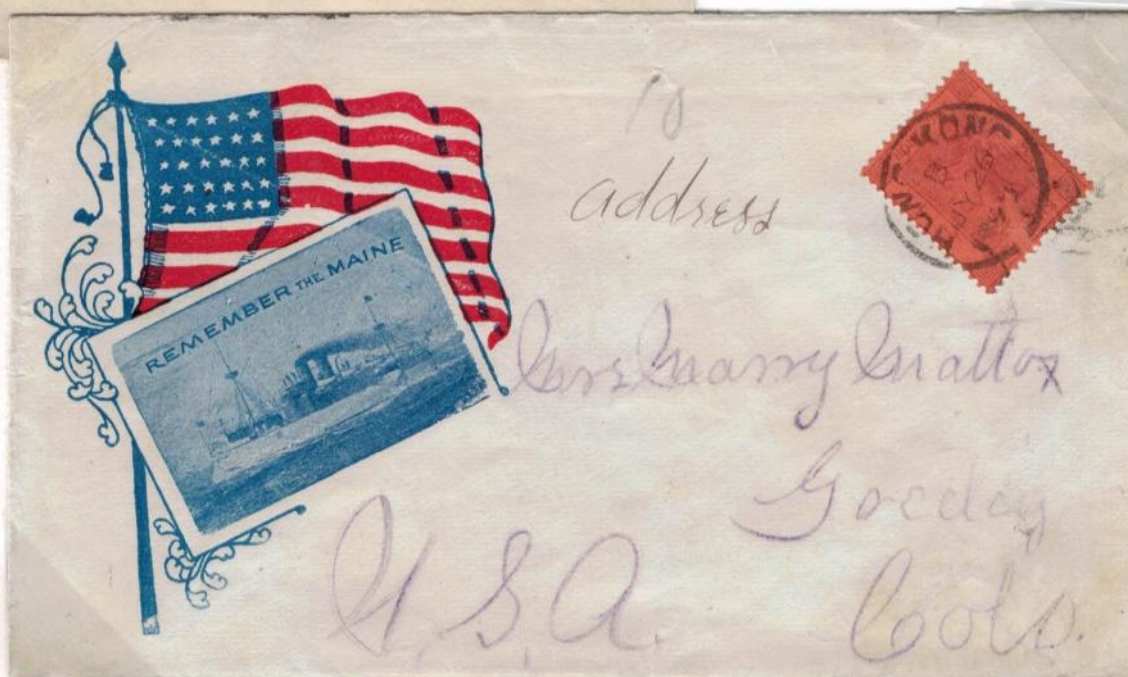 REMEMBER THE MAINE
10
address
HONG KONG
B
JY 26
Mrs Marry Mattox
Goeday
U.S.A. Colo.